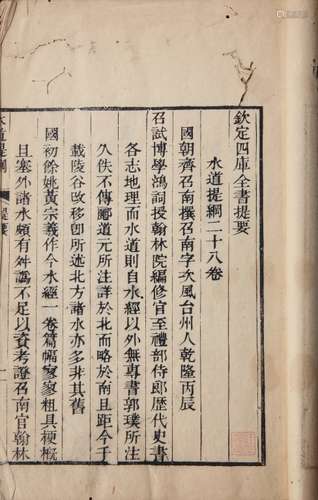 欽定四庫全書提要
水道提綱二十八卷
國朝齊召南撰召南字次風台州人乾隆丙辰
召試博學鴻詞授翰林院編修官至禮部侍郎歷代史書
各志地理而水道則自水經以外無專書郭璞所注
久佚不傳酈道元所注詳於北而略於南且距今千
載陵谷改移卽所述北方諸水亦多非其舊
國初餘姚黃宗羲作今水經一卷篇幅寥寥粗具梗槩
且塞外諸水頗有舛譌不足以資考證召南官翰林
水道提綱
提要
一